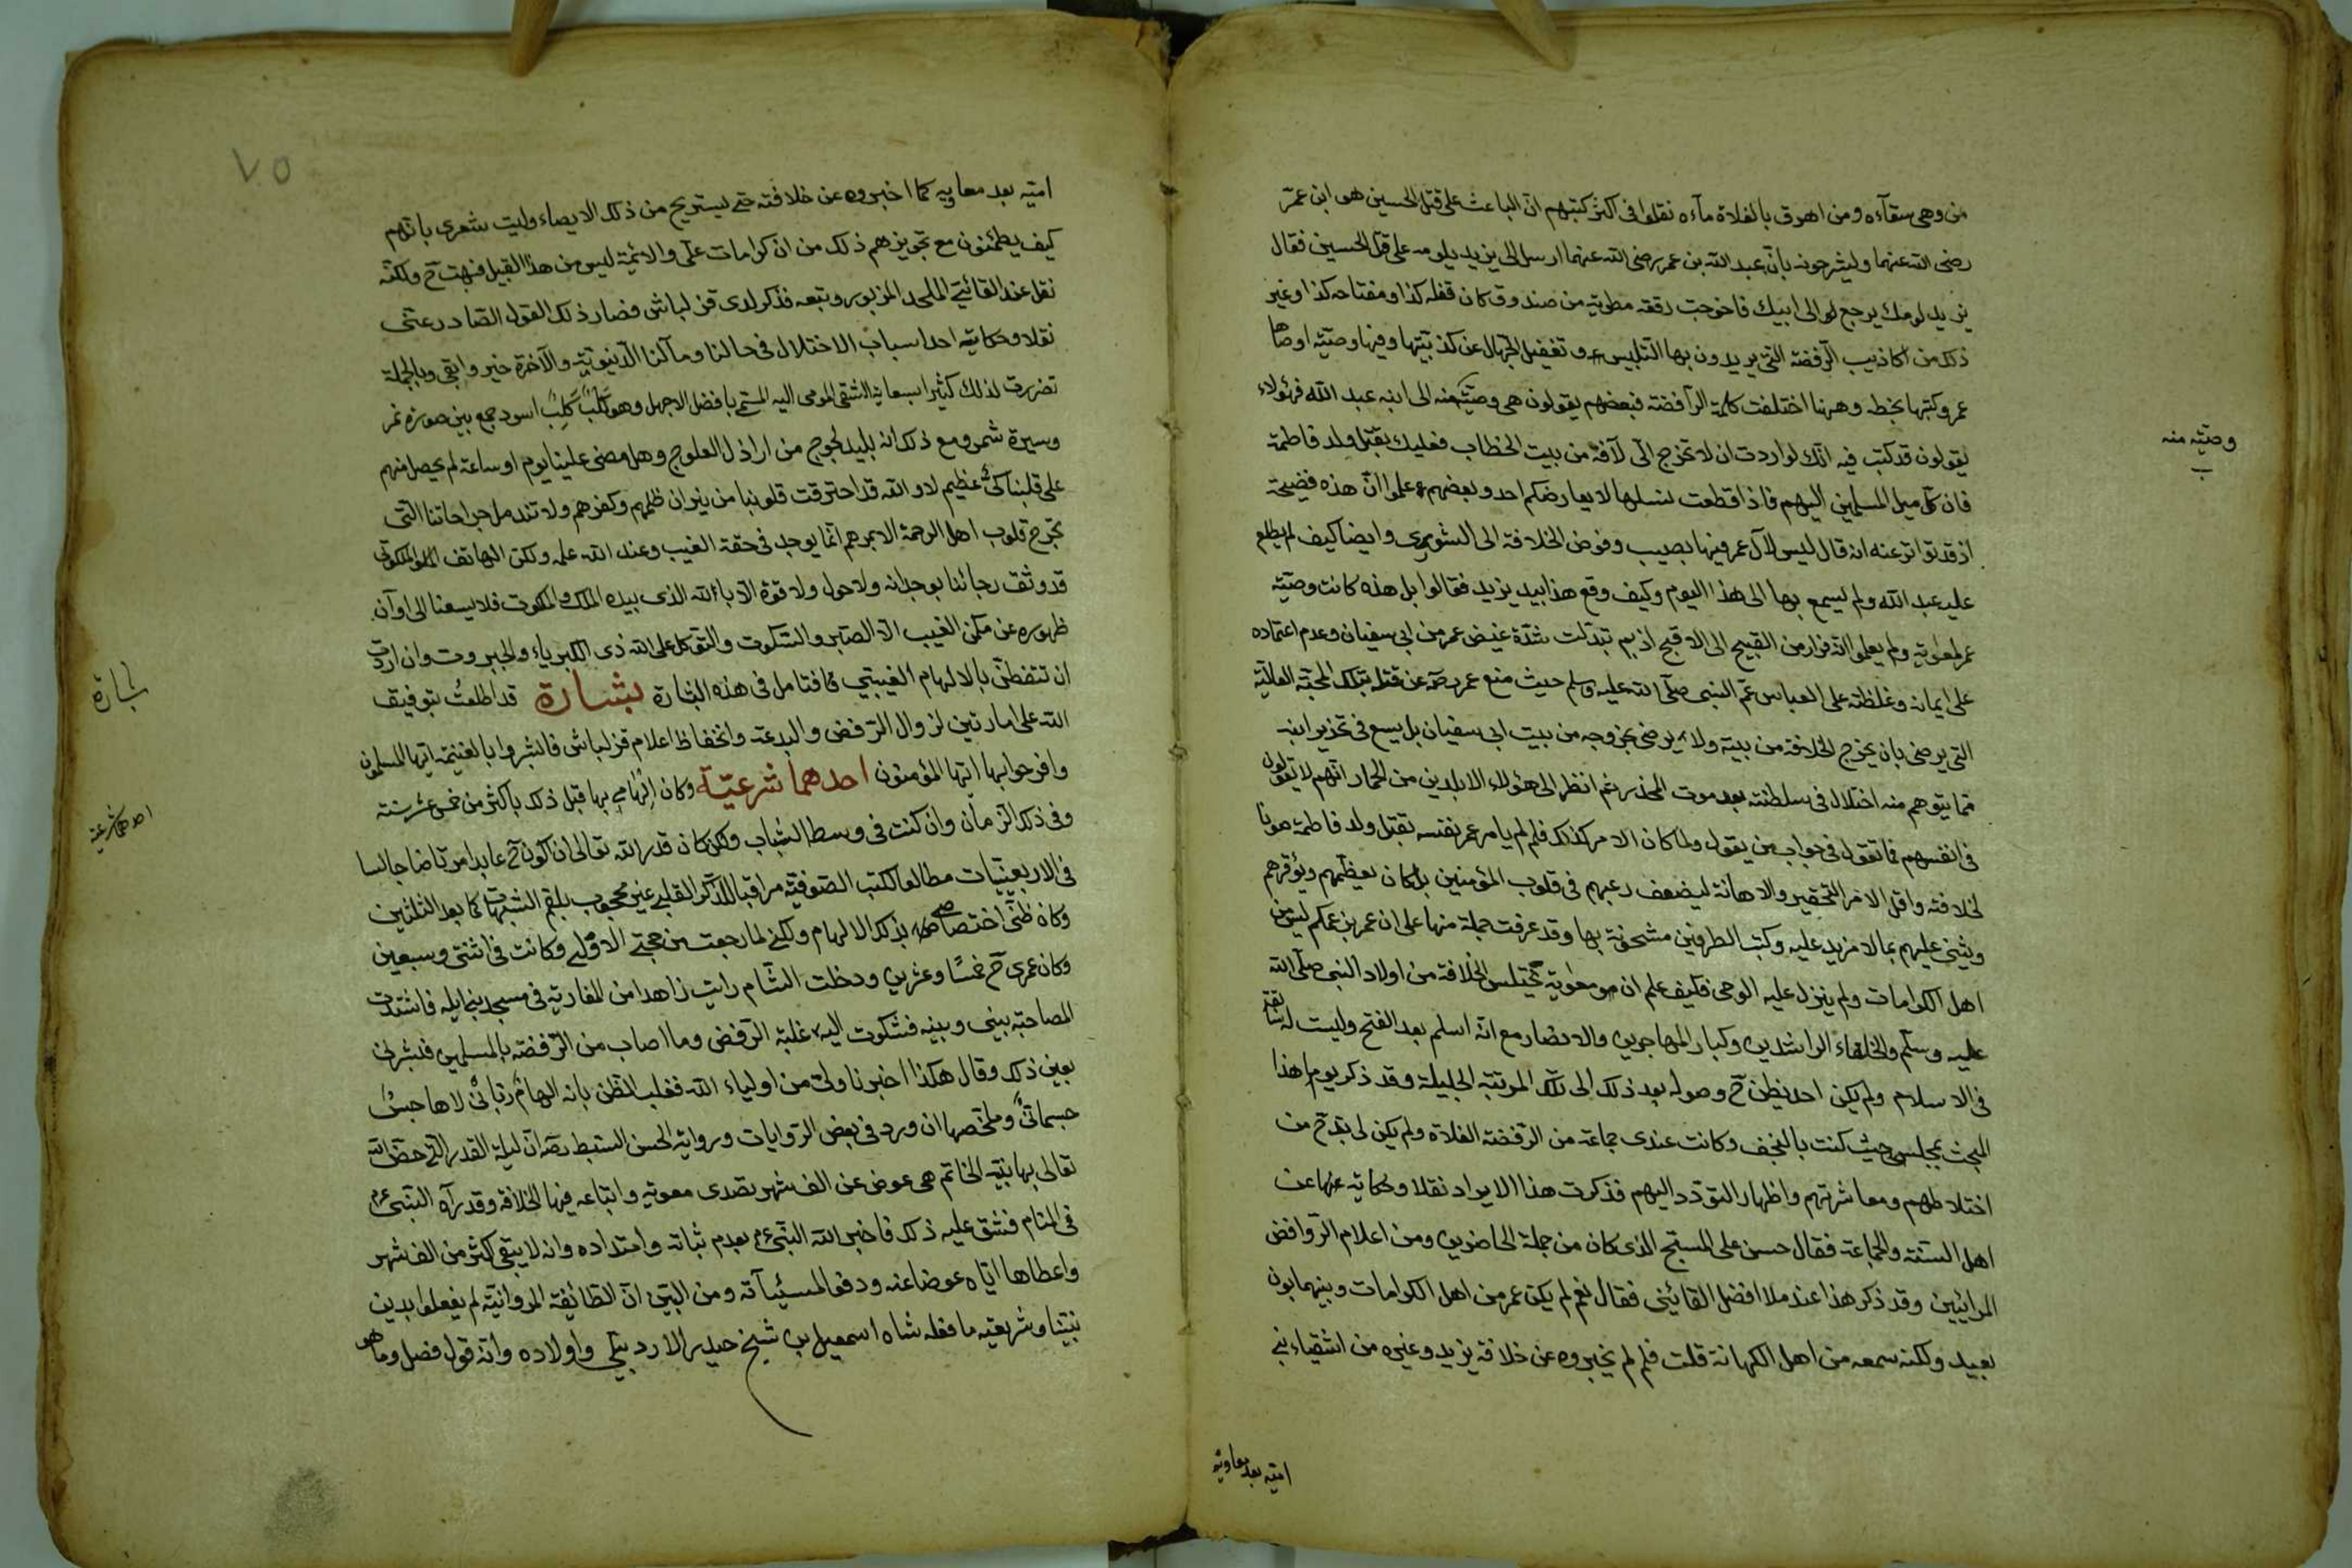 من وهى سقآءه ومن اهرق بالفلاة مآءه نقلوا فى اكثر كتبهم ان الباعث على قتل الحسين هو ابن عمر
رضى الله عنهما وليشرحونه بانّ عبد الله بن عمر رضى الله عنهما ارسل الى يزيد يلومه على قتل الحسين فقال
يزيد لومك يرجع لو الى ابيك فاخرجت رقعة مطوية من صندوق كان قفله كذا ومفتاحه كذا وغير
ذلك من اكاذيب الرفضة التى يريدون بها التلبيس وتغفيل الجهال عن كذبيتها وفيها وصيّته اوصاها
عمر وكتبها بخطه وههنا اختلفت كلمة الرآفضة فبعضهم يقولون هى وصيّة منه الى ابنه عبد الله فهؤلاء
يقولون قد كتب فيه انّك لو اردت ان لا تخرج الخلافة من بيت الخطاب فعليك بقتل ولد فاطمة
فان كل ميل المسلمين اليهم فاذا قطعت نسلها لا يعارضكم احد وبعضهم علموا انّ هذه فضيحة
اذ قد تواتر عنه انه قال ليس لآل عمر فيها نصيب وفوض الخلافة الى الشورى وايضا كيف لم يطلع
عليه عبد الله ولم يسمع بها الى هذا اليوم وكيف وقع هذا بيد يزيد فقالوا بل هذه كانت وصيّته
عمر لمعوية ولم يعلموا انه فرار من القبيح الى الاقبح اذ بم تبدلت شدّة غيض عمر من ابى سفيان وعدم اعتماده
على ايمانه وغلظته على العباس عمّ النبى صلّى الله عليه وسلم حيث منع عمر رضه عن قتله بتلك المحبّة العالية
التى يرضى بان يخرج الخلافة من بيته ولا يرضى بخروجه من بيت ابى سفيان بل يسع فى تحذير ابنه
مما يتوهم منه اختلال فى سلطنته بعد موت المحذر نعم انظر الى هؤلاء الابلدين من الحمار انهم لا يقولون
فى انفسهم فما تقول فى جواب من يقول ولما كان الامر كذلك فلم لم يامر عمر نفسه بقتل ولد فاطمة صونا
لخلافته واقل الامر التحقير والاهانة ليضعف رعبهم فى قلوب المؤمنين بل كان يعظّمهم ويؤقرهم
ويثنى عليهم بما لا مزيد عليه وكتب الطرفين مشحونة بها وقد عرفت جملة منها على ان عمر بزعمكم ليس من
اهل الكرامات ولم ينزل عليه الوحى فكيف علم ان معوية يختلس الخلافة من اولاد النبى صلّى الله
عليه وسلّم والخلفاء الراشدين وكبار المهاجرين والانصار مع انّه اسلم بعد الفتح وليست له سابقة
فى الاسلام ولم يكن احد يظن ح وصوله بعد ذلك الى تلك المرتبة الجليلة وقد ذكر يوما هذا
المبحث بمجلسى حيث كنت بالنجف وكانت عندى جماعة من الرّفضة الغلاة ولم يكن لى بد ح من
اختلاطهم ومعاشرتهم واظهار التودّد اليهم فذكرت هذا الايراد نقلا وحكاية عنها عن
اهل السنّة والجماعة فقال حسن على المسبّح الذى كان من جملة الحاضرين ومن اعلام الروافض
المرائيين وقد ذكر هذا عند ملا افضل القائينى فقال نعم لم يكن عمر من اهل الكرامات وبينهما بون
بعيد ولكنه سمعه من اهل الكهانة قلت فلم لم يخبروه عن خلافة يزيد وغيره من اشقياء بنى
امية بعد معاوية
وصيّته منه
ب
٧٥
اميّه بعد معاويه كما اخبروه عن خلافته حتى يستريح من ذلك الايصاء وليت شعرى بانهم
كيف يطمئنون مع تجويزهم ذلك من ان كرامات على والائمة ليس من هذا القبيل فبهت ح ولكنّه
نقل عند القائينى الملحد المزبور وتبعه فذكر لدى قزلباش فصار ذلك القول الصادر عنى
نقلا وحكاية احد اسباب الاختلال فى حالنا ومآلنا الدنيويّة والآخرة خير وابقى وبالجملة
تضررت لذلك كثيرا بسعاية الشقى المومى اليه المسمّى بافضل الاجهل وهو كلبٌ كَلِبٌ اسود جمع بين صورة نمر
وسيرة شمر ومع ذلك انه بليد لجوج من اراذل العلوج وهل مضى علينا يوم او ساعة لم يحصل منهم
على قلبنا كىٌّ عظيم لا والله قد احترقت قلوبنا من نيران ظلمهم وكفرهم ولا تندمل جراحاتنا التى
تجرح قلوب اهل الرحمة الا بمرهم انّما يوجد فى حقة الغيب وعند الله علمه ولكن الهاتف الملكوتى
قد وثق رجائنا بوجدانه ولا حول ولا قوّة الا بالله الذى بيده الملك والملكوت فلا يسعنا الى اوآن
ظهوره عن مكمن الغيب الا الصّبر والسّكوت والتوكل على الله ذى الكبرياء والجبروت وان اردت
ان تتفطن بالالهام الغيبى فافتامل فى هذه البشارة بشارة قد اطلعت بتوفيق
الله على امارتين لزوال الرّفض والبدعة وانخفاظ اعلام قزلباش فابشروا بالغنيمة ايّها المسلمون
وافرحوا بها ايّها المؤمنون احدهما شرعيّة وكان الهامى بها قبل ذلك باكثر من خمس عشر سنة
وفى ذلك الزمان وان كنت فى وسط الشباب ولكن كان قدر الله تعالى ان اكون ح عابدا مرتاضا جالسا
فى الاربعينيات مطالعا لكتب الصّوفيّة مراقبا للذّكر القلبى غير محجوب بلقم الشبهات كما بعد الثلثين
وكان ظنّى اختصاصى بذلك الالهام ولكنى لما رجعت من حجّتى الاولى وكانت فى اثنتى وسبعين
وكان عمرى ح خمسًا وعشرين ودخلت الشّام رايت زاهدا من المغاربة فى مسجد بنى اميه فاشتدت
المصاحبة بينى وبينه فشكوت اليه غلبة الرّفض وما اصاب من الرّفضة بالمسلمين فبشرنى
بعين ذلك وقال هكذا اخبرنا ولىّ من اولياء الله فغلب الظّن بانه الهامٌ ربّانىٌّ لا هاجسٌ
جسمانىٌّ وملخّصها ان ورد فى بعض الرّوايات ورواية الحسن السبط رضه انّ ليلة القدر التى خصّ الله
تعالى بها نبيّه الخاتم هى عوض عن الف شهر تصدى معوية واتباعه فيها الخلافة وقد رآه النبى عم
فى المنام فشق عليه ذلك فاخبر الله النّبى عم بعدم ثباته وامتداده وانه لا يبقى اكثر من الف شهر
واعطاها ايّاه عوضا عنه ودفعا لمسيئآته ومن البيّن انّ الطّائفة المروانيّة لم يفعلوا بدين
نبيّنا وشريعته ما فعله شاه اسمعيل بن شيخ حيدر الاردبيلى واولاده وانّه قول فصل وما هو
بشارة
احدهما شرعية